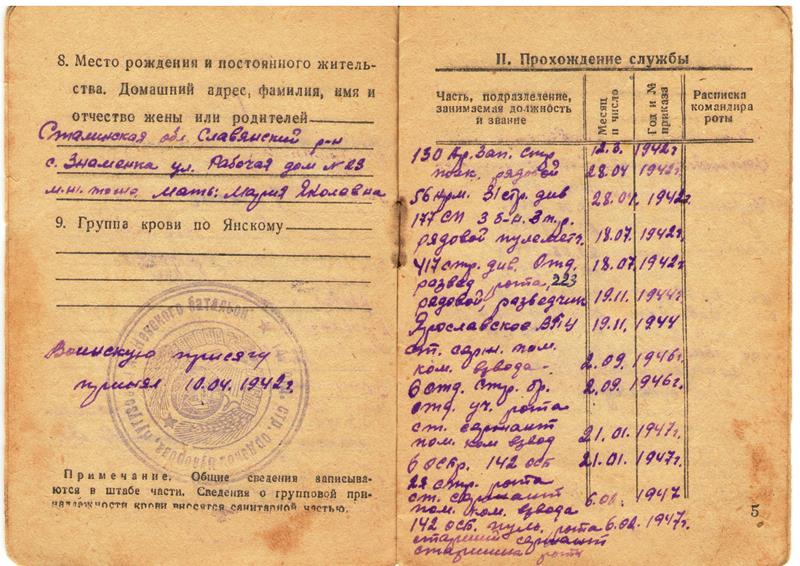 8. Место рождения и постоянного житель-
ства. Домашний адрес, фамилия, имя и
отчество жены или родителей
Сталинская обл. Славянский р-н
с. Знаменка ул. Рабочая дом №23
Мать: Мария Яковлевна
9. Группа крови по Янскому
Воинскую присягу
принял 10.04.1942г.
Примечание. Общие сведения записыва-
ются в штабе части. Сведения о групповой при-
надлежности крови вносятся санитарной частью.
II. Прохождение службы
Часть, подразделение,
занимаемая должность
и звание
Месяц
и число
Год и №
приказа
Расписка
командира
роты
130 Кр. Зап. Стр 12.3. 1942г
полк, рядовой 28.04 1942г
56 Арм. 31 стр. див 28.04. 1942г
177 СП 3 б-н. 3 т.р.
рядовой пулемет. 18.07. 1942г.
417 стр. див. Отд. 18.07. 1942г.
развед рота, 223
рядовой, разведчик 19.11. 1944г
Ярославское ВПУ 19.11. 1944
ст. серж. пом.
ком. взвода 2.09. 1946г
6 отд. Стр. бр. 2.09. 1946г.
отд. уч. рота
ст. сержант
пом. ком взвод 21.01. 1947г.
6 остр. 142 осб 21.01. 1947г.
22 стр. рота
ст. сержант 6.02. 1947
пом. ком. взвода
142 осб. пуль. рота 6.02. 1947г.
старший сержант
старшина роты
5